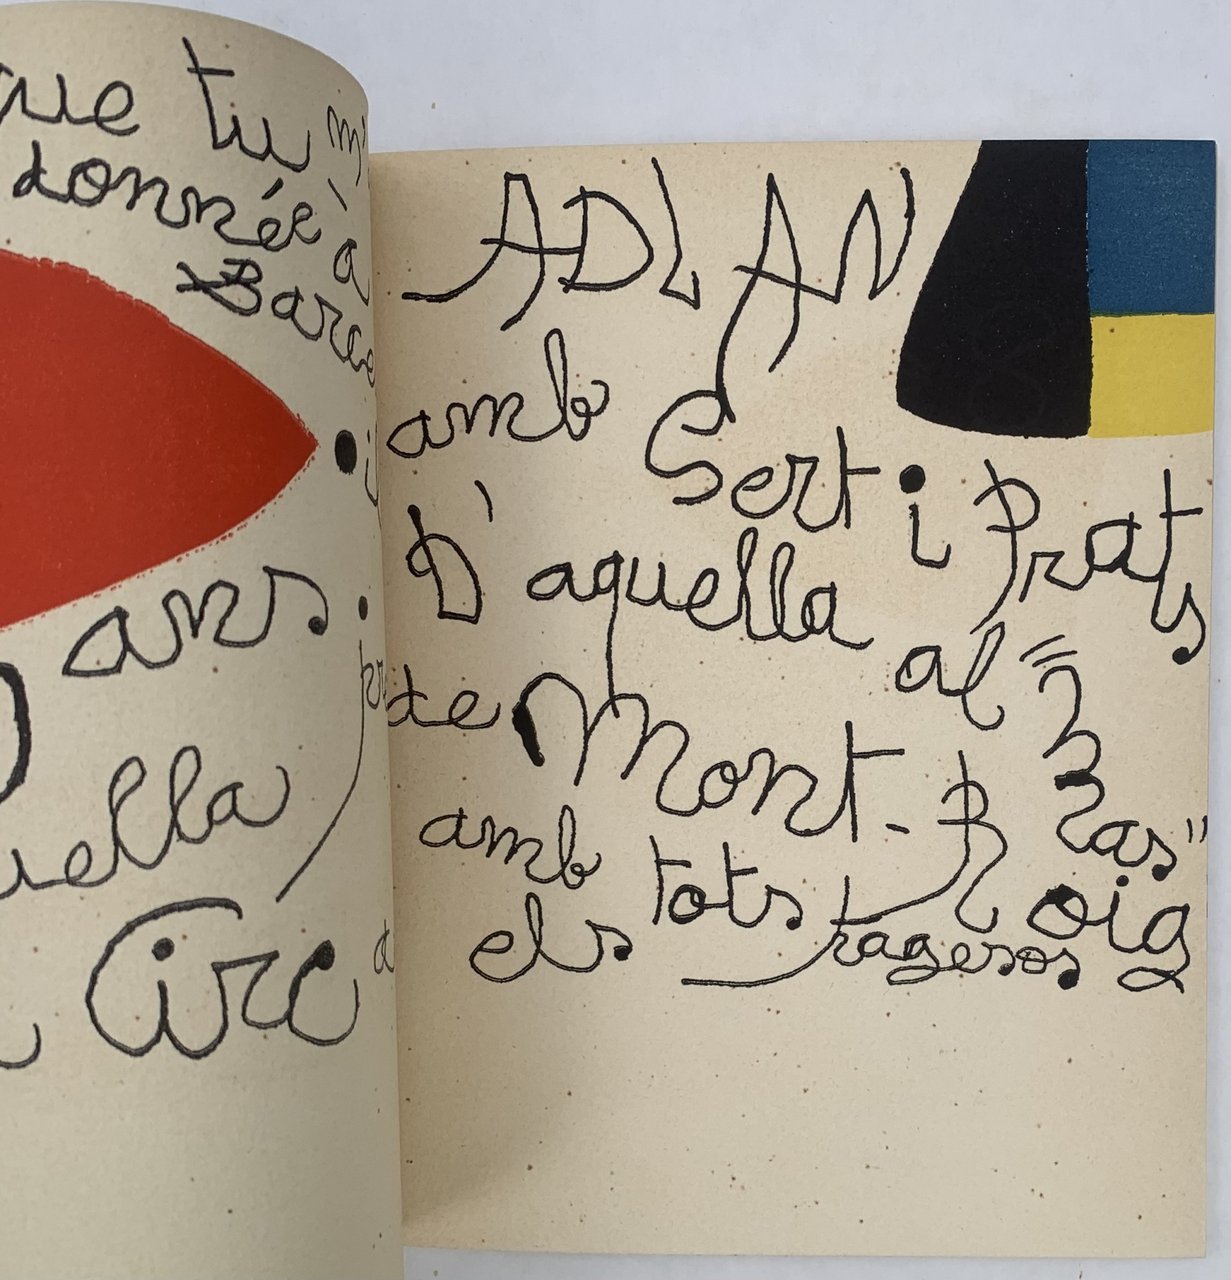 que tu m'
donnée à
Barce
i
ans
uella
Circ
ADLAN
amb Sert i Prats
D'aquella al
de Mont-Roig "Mas"
amb tots
els pagesos